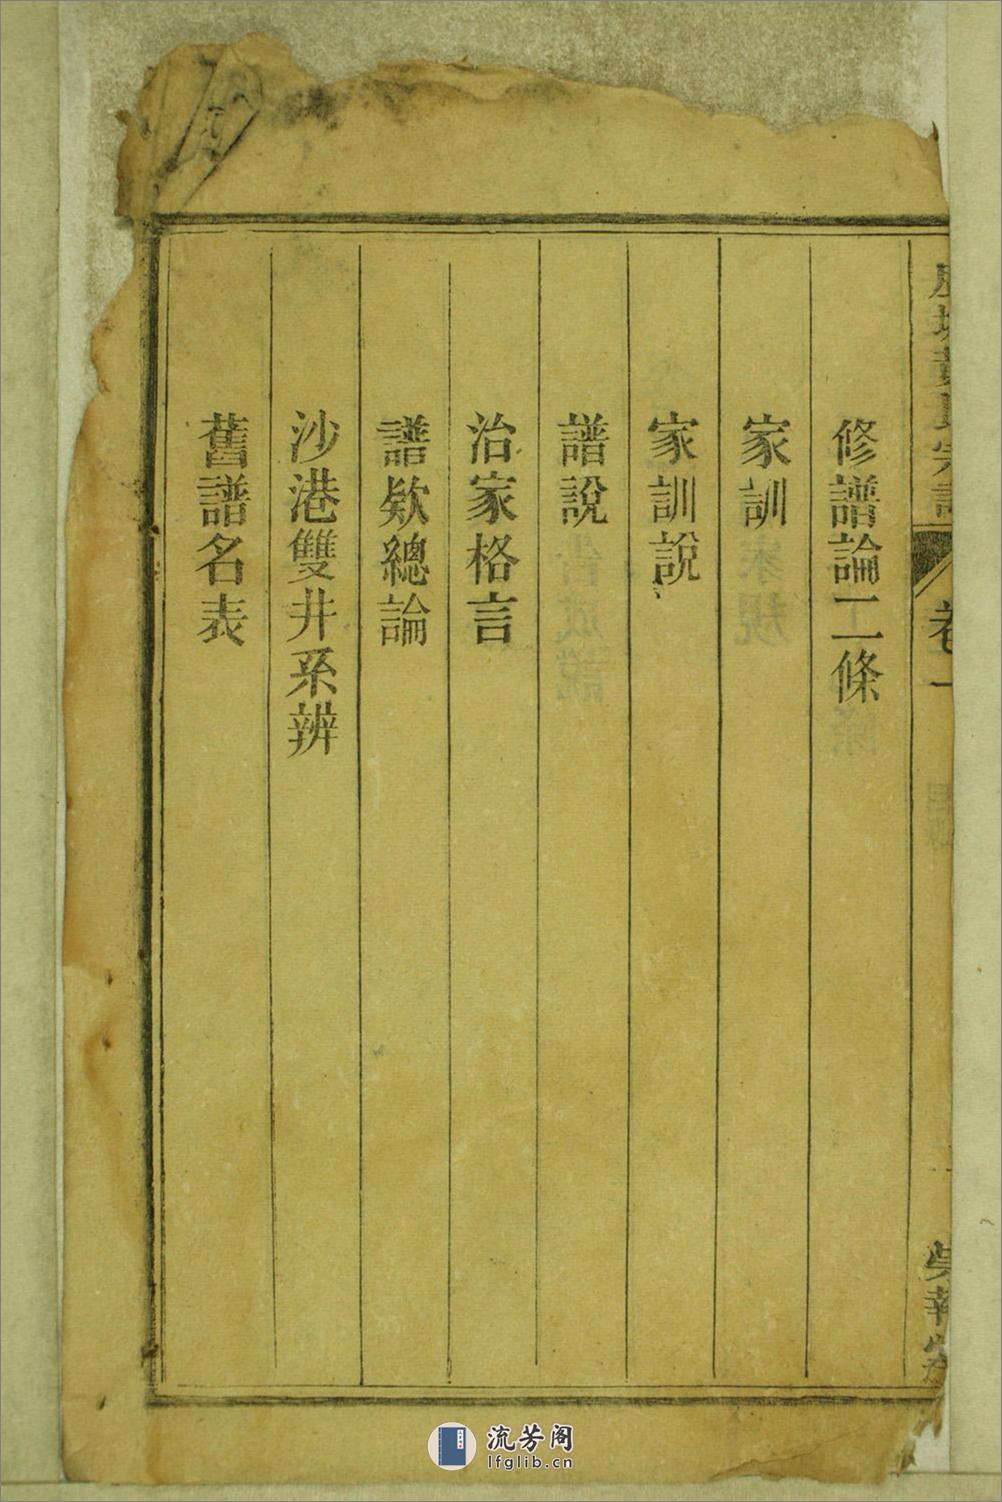 黃氏宗譜
卷一
目錄
修譜論二條
家訓
家訓說
譜說
治家格言
譜欵總論
沙港雙井系辨
舊譜名表
流芳阁
lfglib.cn